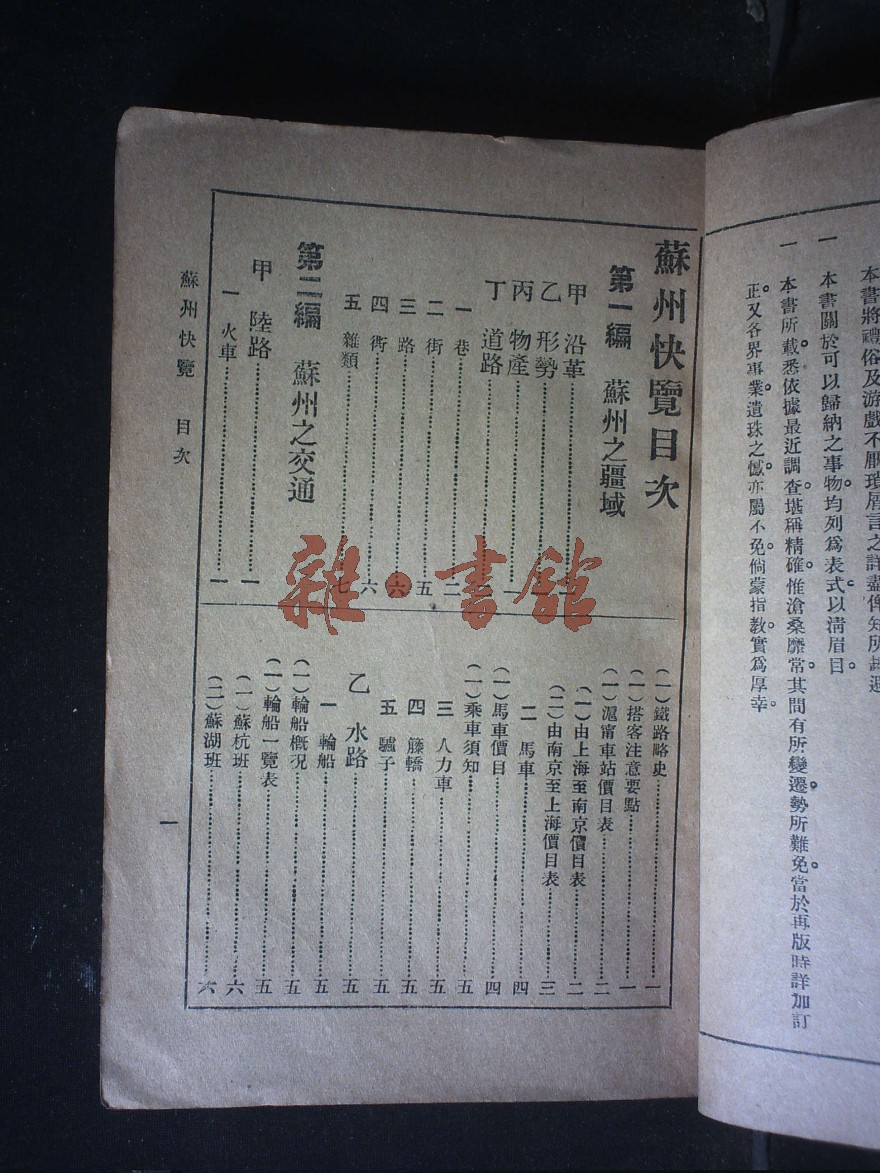 本書將禮俗及游戲不厭瑣屑言之詳盡俾知所
一 本書關於可以歸納之事物均列爲表式以清眉目。
一 本書所載悉依據最近調查堪稱精確惟滄桑靡常其間有所變遷勢所難免當於再版時詳加訂
正。又各界事業遺珠之憾亦屬不免倘蒙指教實爲厚幸。
蘇州快覽目次
第一編 蘇州之疆域
甲 沿革
乙 形勢
丙 物產 一
丁 道路
一 巷 二
二 街 五
三 路 六
四 衖 六
五 雜類 七
第二編 蘇州之交通
甲 陸路 一
一 火車 一
(一)鐵路略史 一
(一)搭客注意要點 一
(一)滬甯車站價目表 二
(一)由上海至南京價目表 二
(二)由南京至上海價目表 三
二 馬車 四
(一)馬車價目 四
(一)乘車須知 五
三 人力車 五
四 籐轎 五
五 驢子 五
乙 水路 五
一 輪船 五
(一)輪船概況 五
(一)輪船一覽表 五
(一)蘇杭班 六
(二)蘇湖班 六
蘇州快覽 目次
一
雜·書館